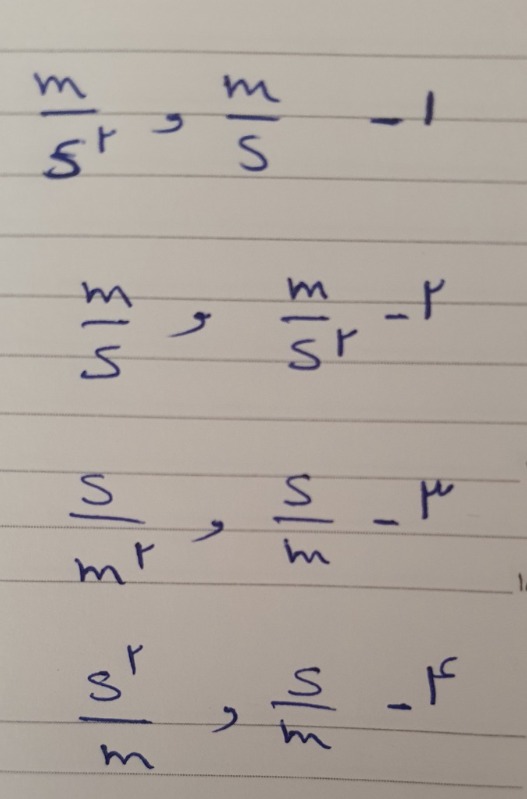 ۱- m/s و m/s۲
۲- m/s۲ و m/s
۳- s/m و s/m۲
۴- s/m و s۲/m